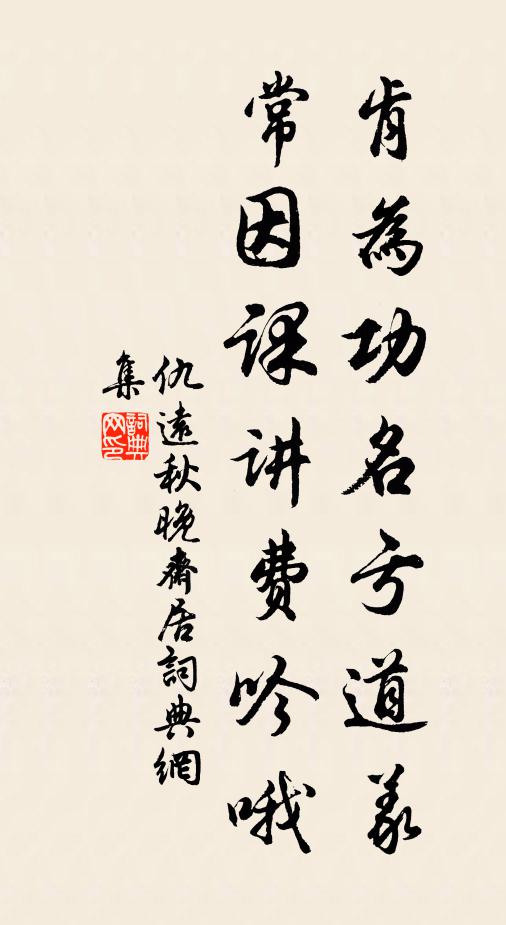 肯為功名亏道義
常因課讲費吟哦
仇遠秋晚齋居詞典網
集
詞典
网印